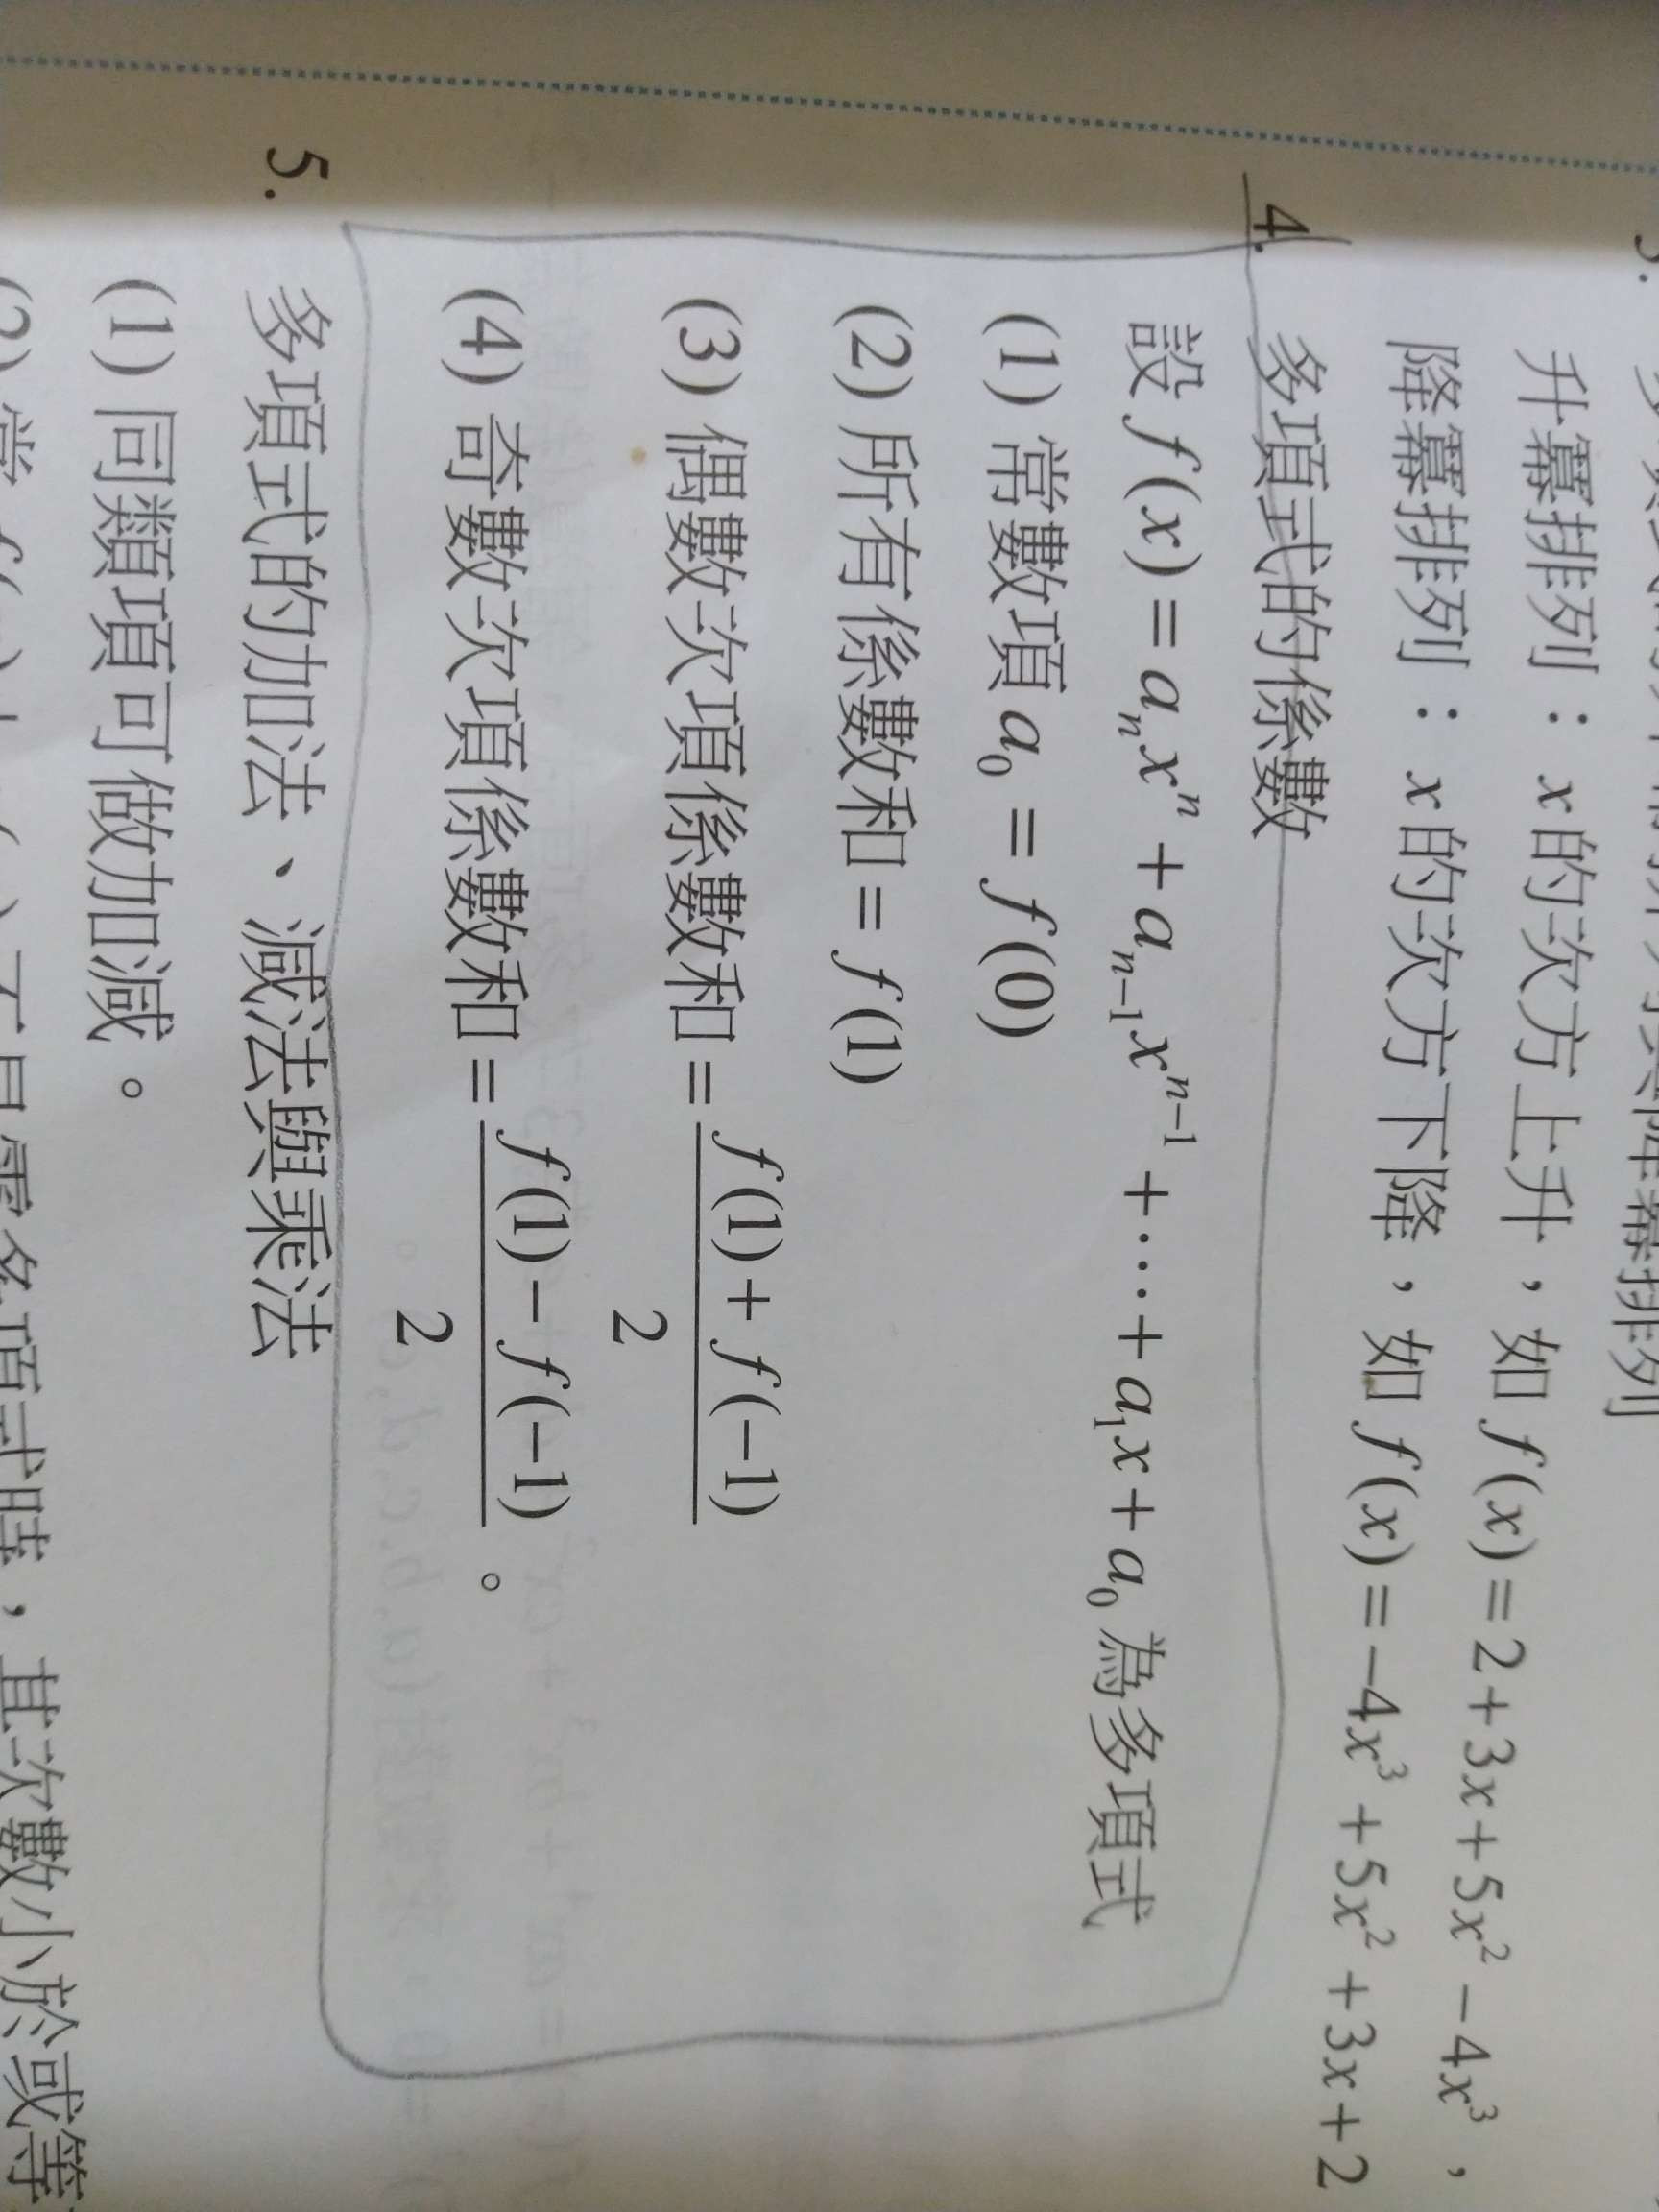 升冪排列：x 的次方上升，如 f(x)=2+3x+5x²−4x³，
降冪排列：x 的次方下降，如 f(x)=−4x³+5x²+3x+2
4. 多項式的係數
設 f(x)=aₙxⁿ+aₙ₋₁xⁿ⁻¹+⋯+a₁x+a₀ 為多項式
(1) 常數項 a₀=f(0)
(2) 所有係數和=f(1)
(3) 偶數次項係數和=\frac{f(1)+f(−1)}{2}
(4) 奇數次項係數和=\frac{f(1)−f(−1)}{2}。
5. 多項式的加法、減法與乘法
(1) 同類項可做加減。
多項式時，其次數小於或等